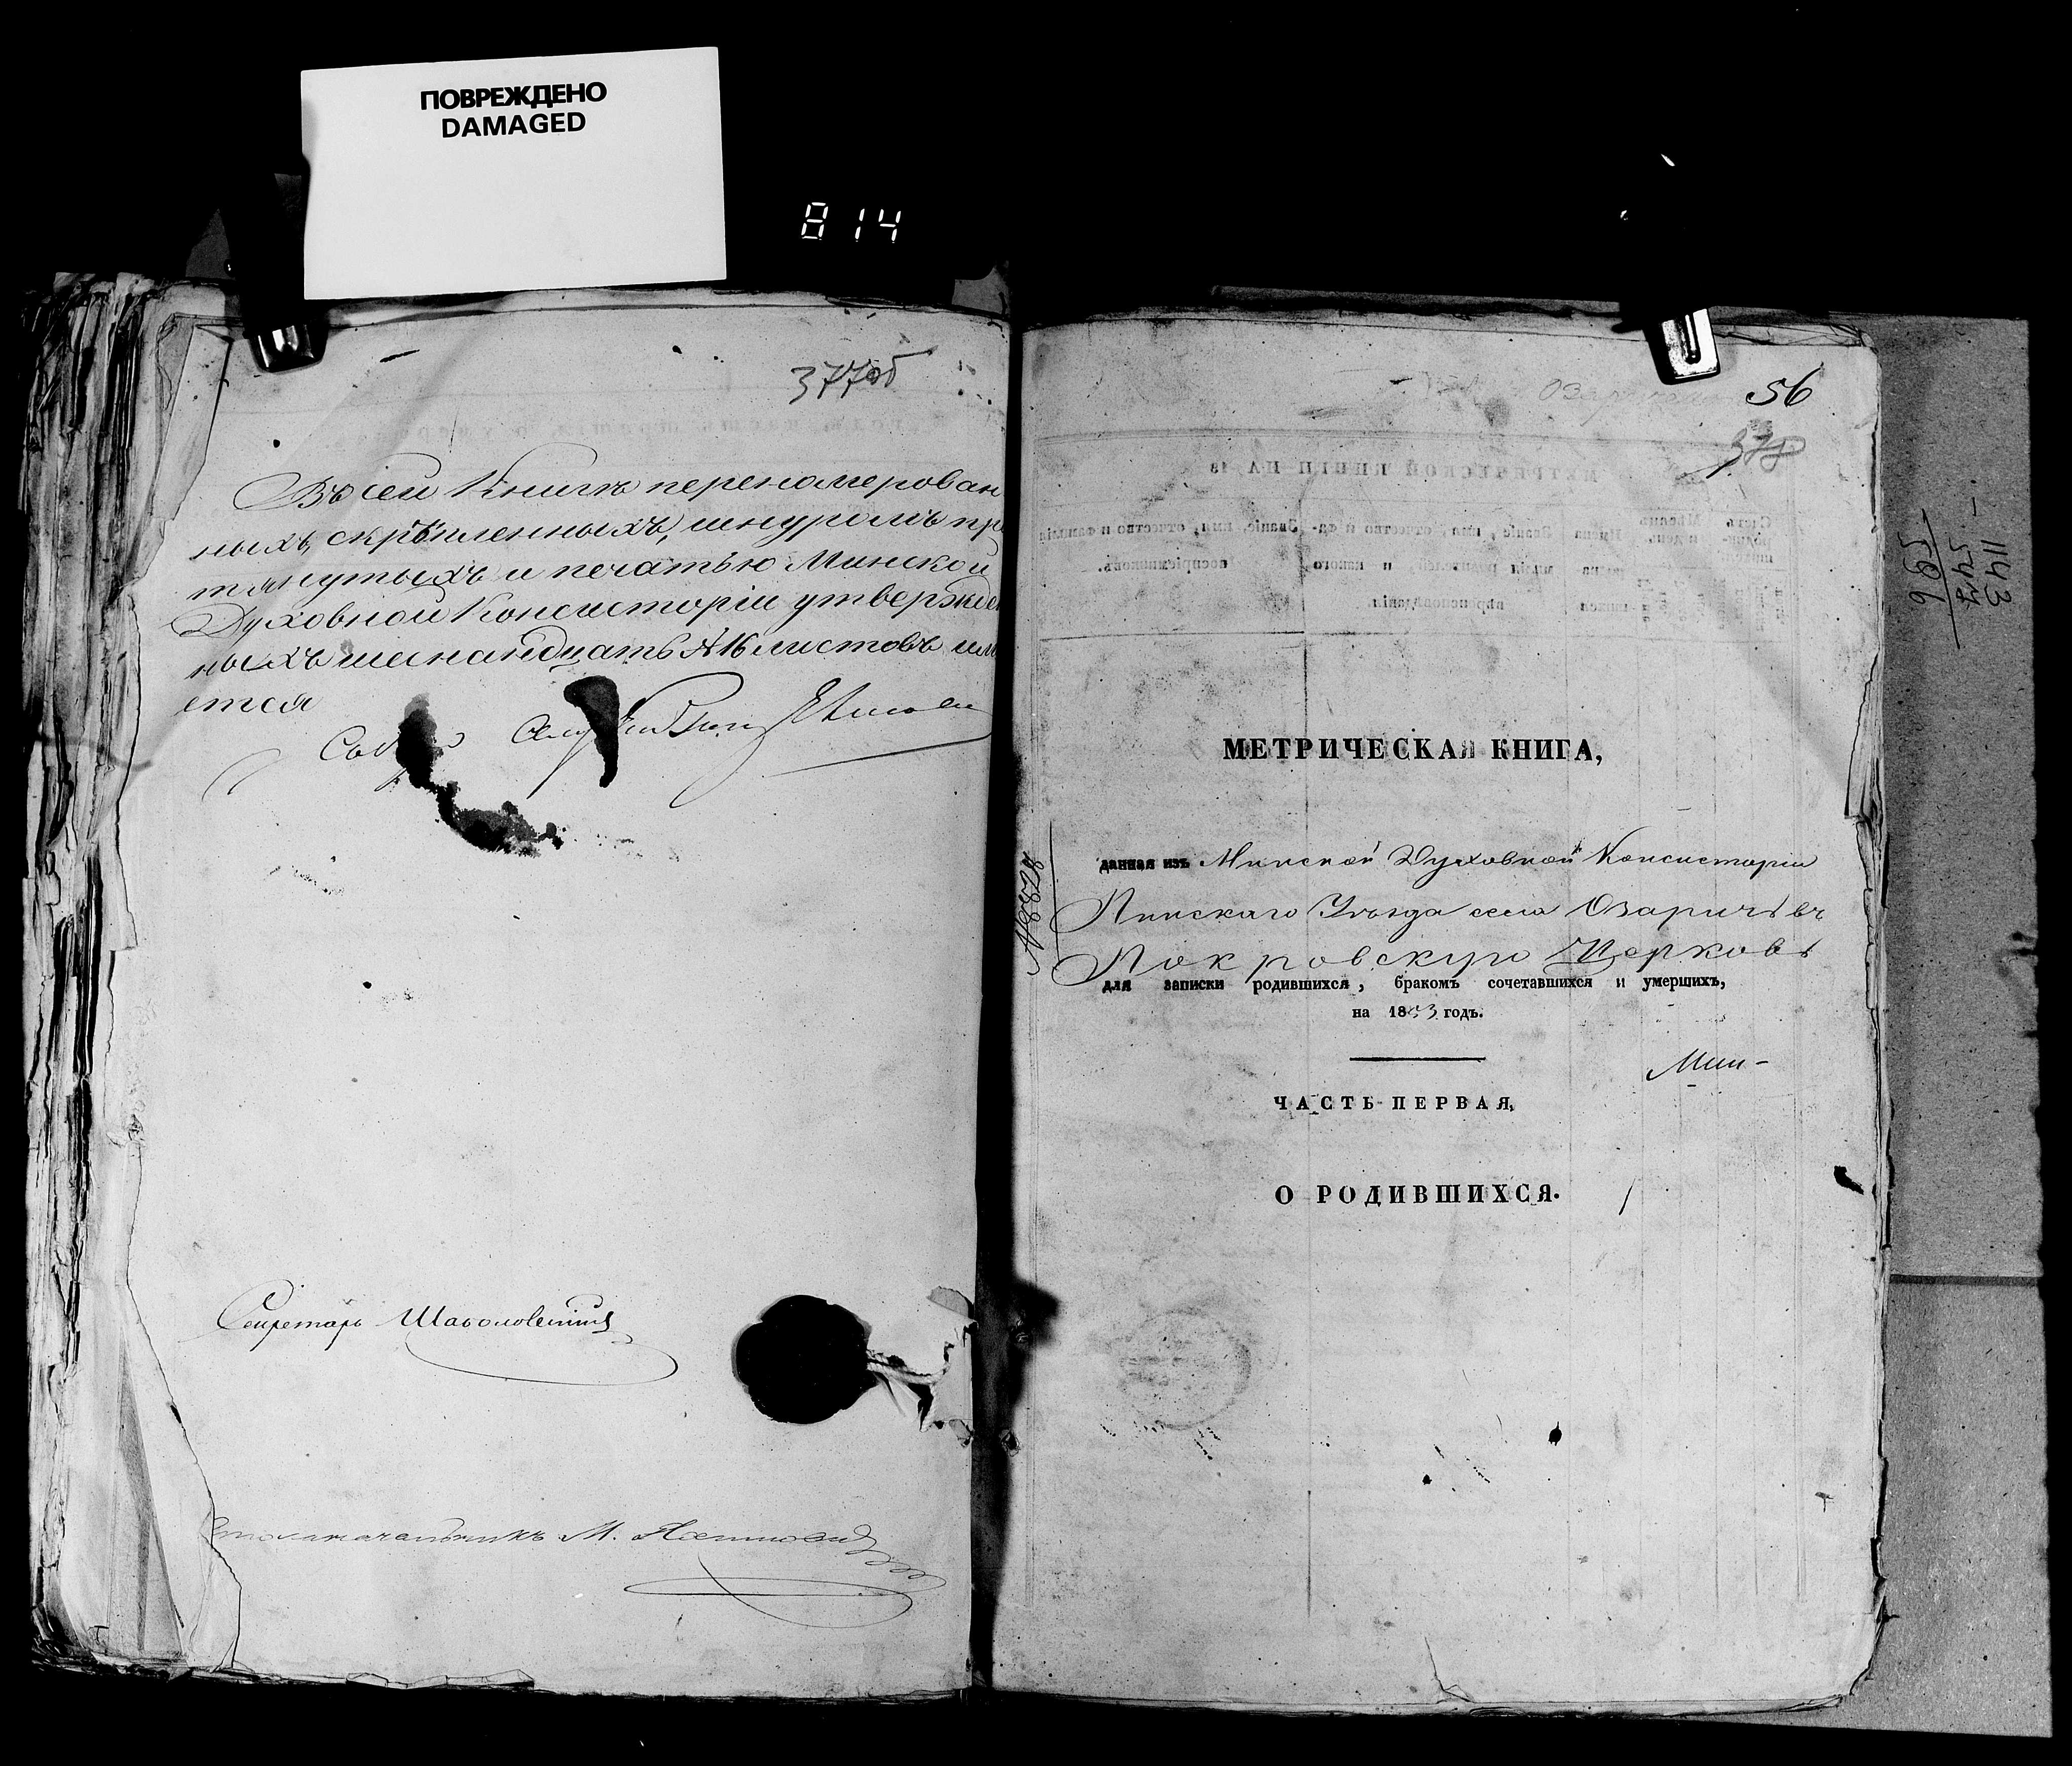 ПОВРЕЖДЕНО
DAMAGED
814
377об
Въ сей Книгѣ перенамерован
ныхъ, скрѣпленныхъ, шнуромъ про
тянутыхъ и печатью Минской
Духовной Консисторіи утвержден
ныхъ шестнадцать № 16 листовъ им
ется
Секретарь
Столоначальникъ М.
56
378
МЕТРИЧЕСКАЯ КНИГА,
данная изъ Минской Духовной Консисторіи
Пинскаго Уѣзда села Озаричъ въ
Покровскую Церковь
для записки родившихся, бракомъ сочетавшихся и умершихъ,
на 1853 годъ.
Мин-
ЧАСТЬ ПЕРВАЯ,
О РОДИВШИХСЯ.
1143
547
596